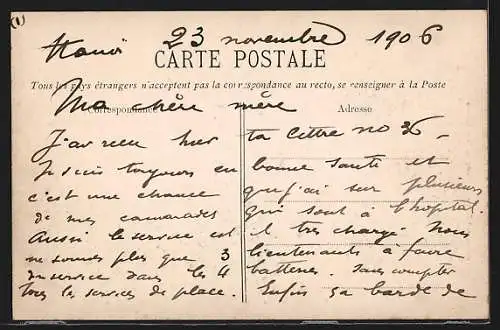 (1)
Hanoï 23 novembre 1906
CARTE POSTALE
Tous les pays étrangers n'acceptent pas la correspondance au recto, se renseigner à la Poste
Correspondance Adresse
Ma chère mère
J'ai reçu hier ta lettre no 36 -
Je suis toujours en bonne santé et
c'est une chance que j'ai sur plusieurs
de mes camarades qui sont à l'hôpital.
Aussi le service est il très chargé. Nous
ne sommes plus que 3 lieutenants à faire
du service dans les 4 batteries. Sans compter
tous les services de place. Enfin sa barde de